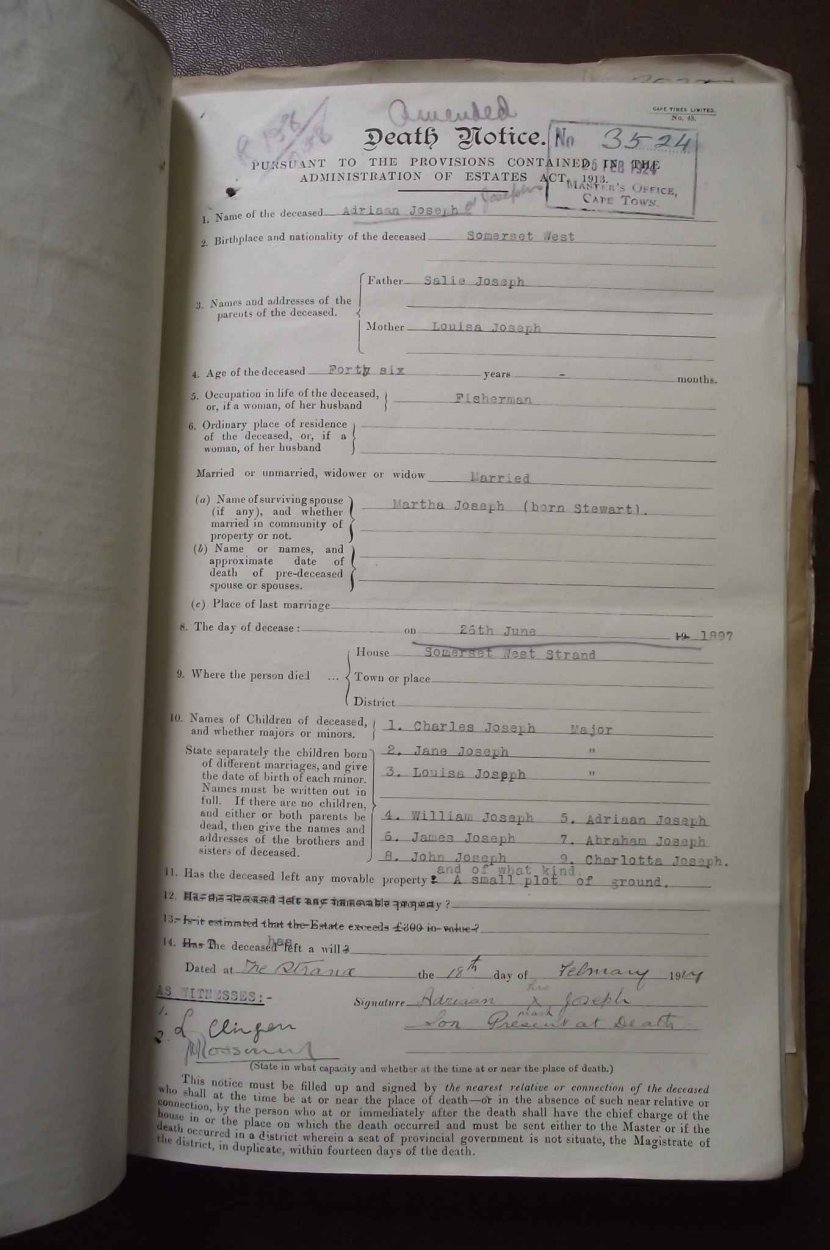 Amended
CAPE TIMES LIMITED.
No. 45.
Death Notice.
No 3524
PURSUANT TO THE PROVISIONS CONTAINED IN THE
ADMINISTRATION OF ESTATES ACT, 1913.
FEB 1924
MASTER'S OFFICE,
CAPE TOWN.
1. Name of the deceased Adriaan Joseph or Josephs
2. Birthplace and nationality of the deceased Somerset West
3. Names and addresses of the parents of the deceased.
Father Salie Joseph
Mother Louisa Joseph
4. Age of the deceased Forty six years - months.
5. Occupation in life of the deceased,
or, if a woman, of her husband
Fisherman
6. Ordinary place of residence
of the deceased, or, if a
woman, of her husband
Married or unmarried, widower or widow Married
(a) Name of surviving spouse
(if any), and whether
married in community of
property or not.
Martha Joseph (born Stewart).
(b) Name or names, and
approximate date of
death of pre-deceased
spouse or spouses.
(c) Place of last marriage
8. The day of decease: on 26th June 19 1897
9. Where the person died ...
House Somerset West Strand
Town or place
District
10. Names of Children of deceased,
and whether majors or minors.
State separately the children born
of different marriages, and give
the date of birth of each minor.
Names must be written out in
full. If there are no children,
and either or both parents be
dead, then give the names and
addresses of the brothers and
sisters of deceased.
1. Charles Joseph Major
2. Jane Joseph "
3. Louisa Joseph "
4. William Joseph 5. Adriaan Joseph
6. James Joseph 7. Abraham Joseph
8. John Joseph 9. Charlotta Joseph.
and of what kind
11. Has the deceased left any movable property? A small plot of ground.
12. Has the deceased left any immovable property?
13. Is it estimated that the Estate exceeds £300 in value?
14. Has The deceased has left a will?
Dated at The Strand the 18th day of February 1924
AS WITNESSES:-
Signature Adriaan his X mark Joseph
Son Present at Death
1.
2.
(State in what capacity and whether at the time at or near the place of death.)
This notice must be filled up and signed by the nearest relative or connection of the deceased
who shall at the time be at or near the place of death—or in the absence of such near relative or
connection, by the person who at or immediately after the death shall have the chief charge of the
house in or the place on which the death occurred and must be sent either to the Master or if the
death occurred in a district wherein a seat of provincial government is not situate, the Magistrate of
the district, in duplicate, within fourteen days of the death.